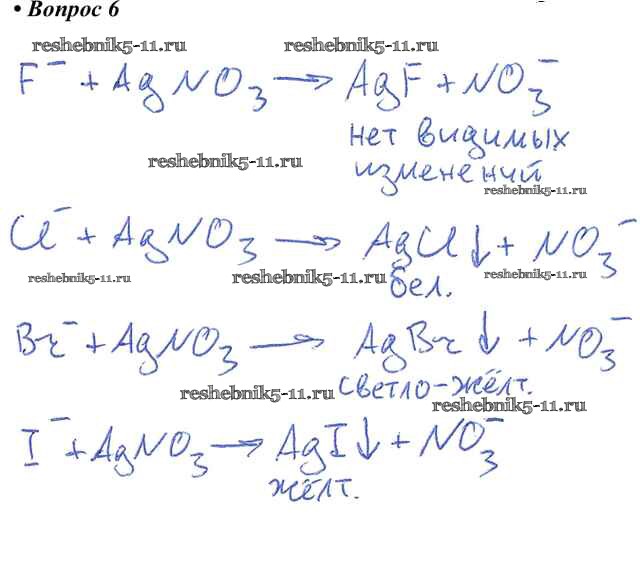 • Вопрос 6
reshebnik5-11.ru reshebnik5-11.ru
F⁻ + AgNO₃ → AgF + NO₃⁻
нет видимых
reshebnik5-11.ru
изменений
reshebnik5-11.ru
Cl⁻ + AgNO₃ → AgCl↓ + NO₃⁻
reshebnik5-11.ru reshebnik5-11.ru reshebnik5-11.ru
бел.
Br⁻ + AgNO₃ → AgBr↓ + NO₃⁻
светло-жёлт.
reshebnik5-11.ru reshebnik5-11.ru
I⁻ + AgNO₃ → AgI↓ + NO₃⁻
жёлт.